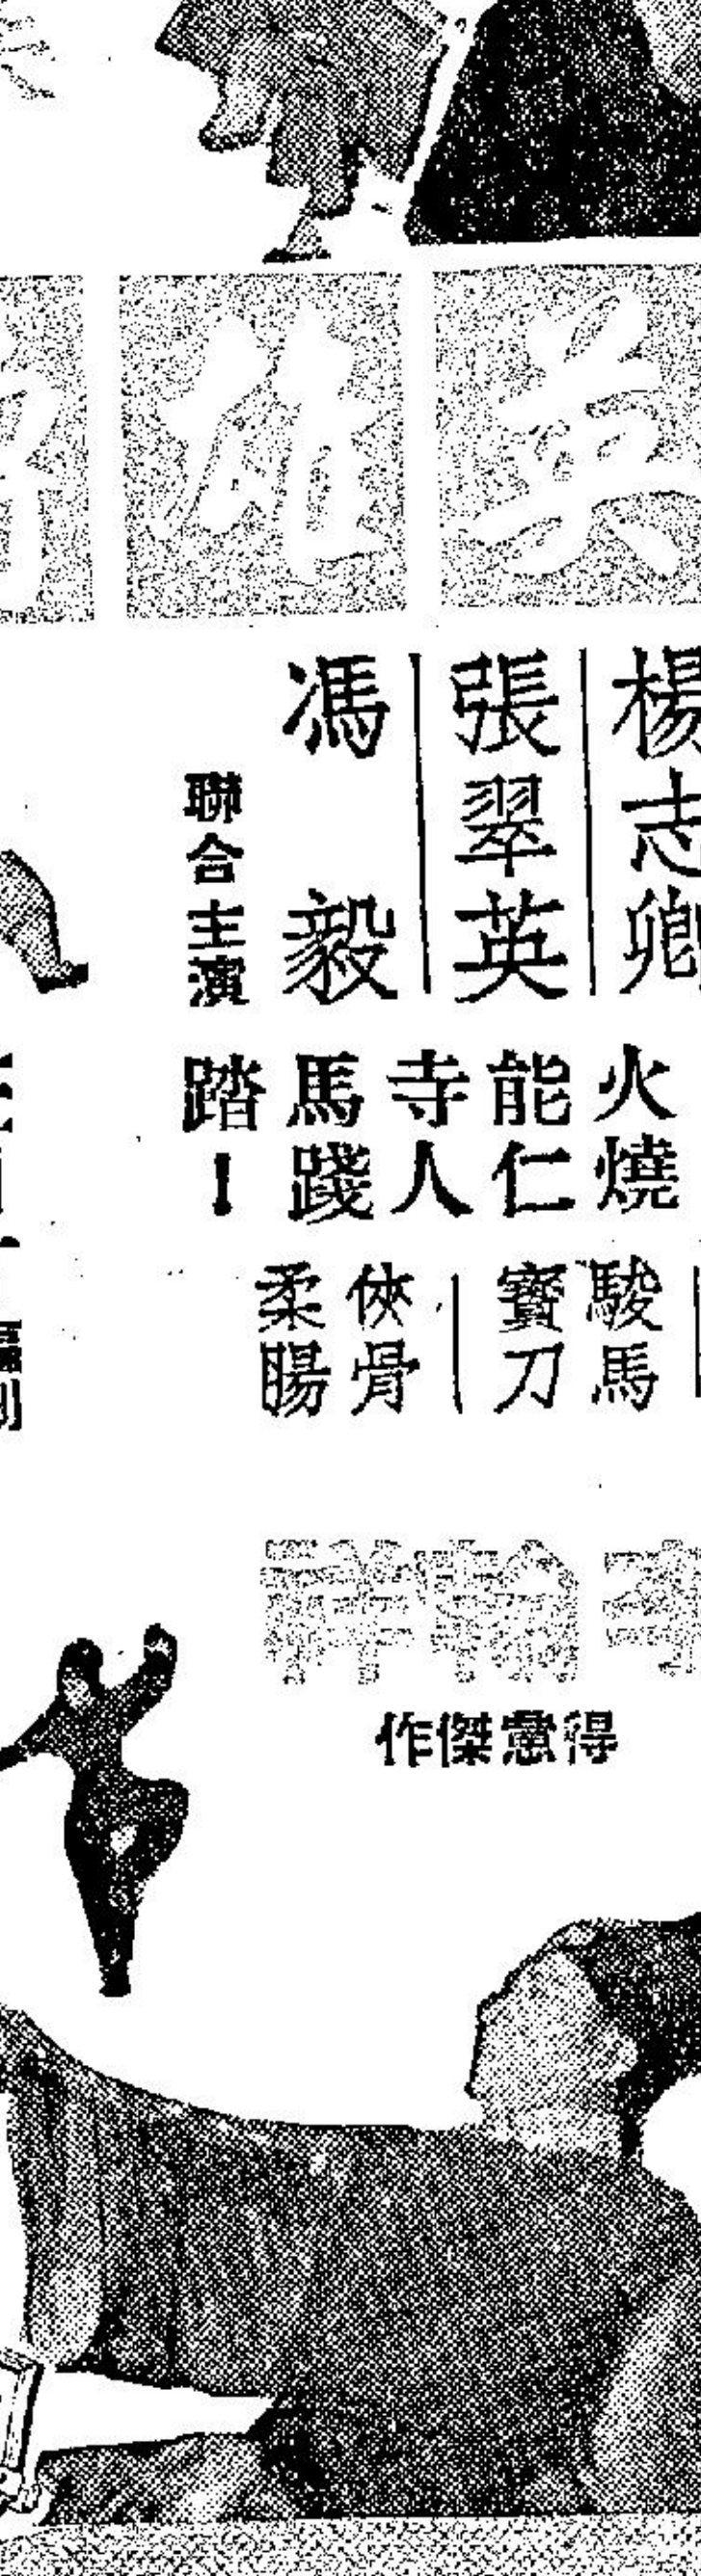 英雄
楊志卿
張翠英
馮毅
聯合主演
火燒
能仁
寺人
馬踐
踏！
駿馬
寶刀
俠骨
柔腸
李翰祥
得意傑作